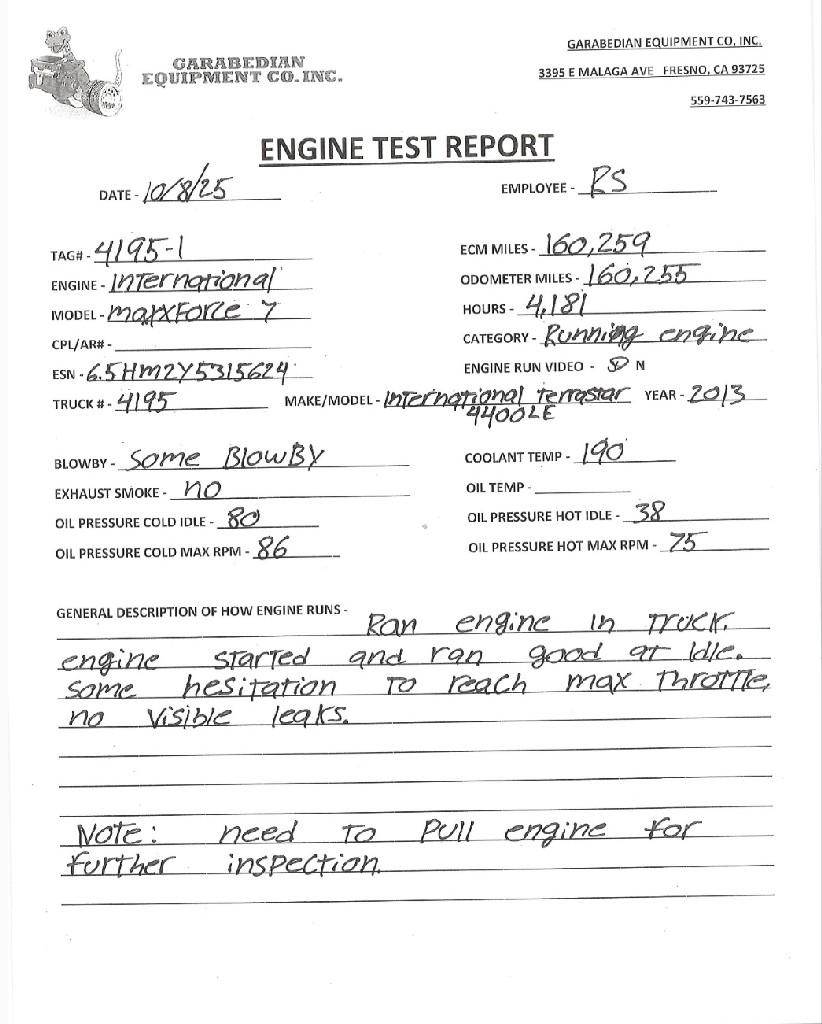 GARABEDIAN
EQUIPMENT CO. INC.
GARABEDIAN EQUIPMENT CO, INC.
3395 E MALAGA AVE FRESNO, CA 93725
559-743-7563
ENGINE TEST REPORT
DATE - 10/8/25 EMPLOYEE - RS
TAG# - 4195-1 ECM MILES - 160,259
ENGINE - International ODOMETER MILES - 160,255
MODEL - maxxForce 7 HOURS - 4,181
CPL/AR# - CATEGORY - Running engine
ESN - 6.5HM2Y5315624 ENGINE RUN VIDEO - N
TRUCK # - 4195 MAKE/MODEL - International Terrastar YEAR - 2013
4400LE
BLOWBY - Some BlowBY COOLANT TEMP - 190
EXHAUST SMOKE - no OIL TEMP -
OIL PRESSURE COLD IDLE - 80 OIL PRESSURE HOT IDLE - 38
OIL PRESSURE COLD MAX RPM - 86 OIL PRESSURE HOT MAX RPM - 75
GENERAL DESCRIPTION OF HOW ENGINE RUNS - Ran engine in Truck.
engine started and ran good at Idle.
Some hesitation to reach max Throttle,
no visible leaks.
Note: need to Pull engine for
further inspection.